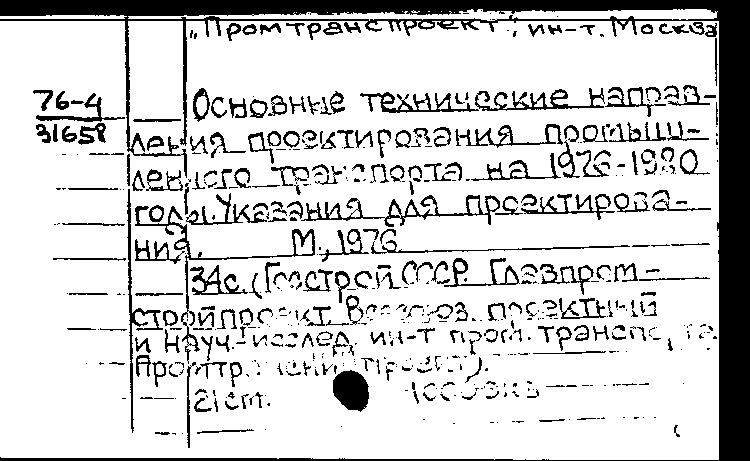 „Промтранспроект", ин-т. Москва
76-4
31658
Основные технические направ-
ления проектирования промыш-
ленного транспорта на 1976-1980
годы. Указания для проектирова-
ния. М., 1976
34с. (Госстрой СССР. Главпром-
стройпроект. Всесоюз. проектный
и науч.-исслед. ин-т пром. транспорта
21 см.